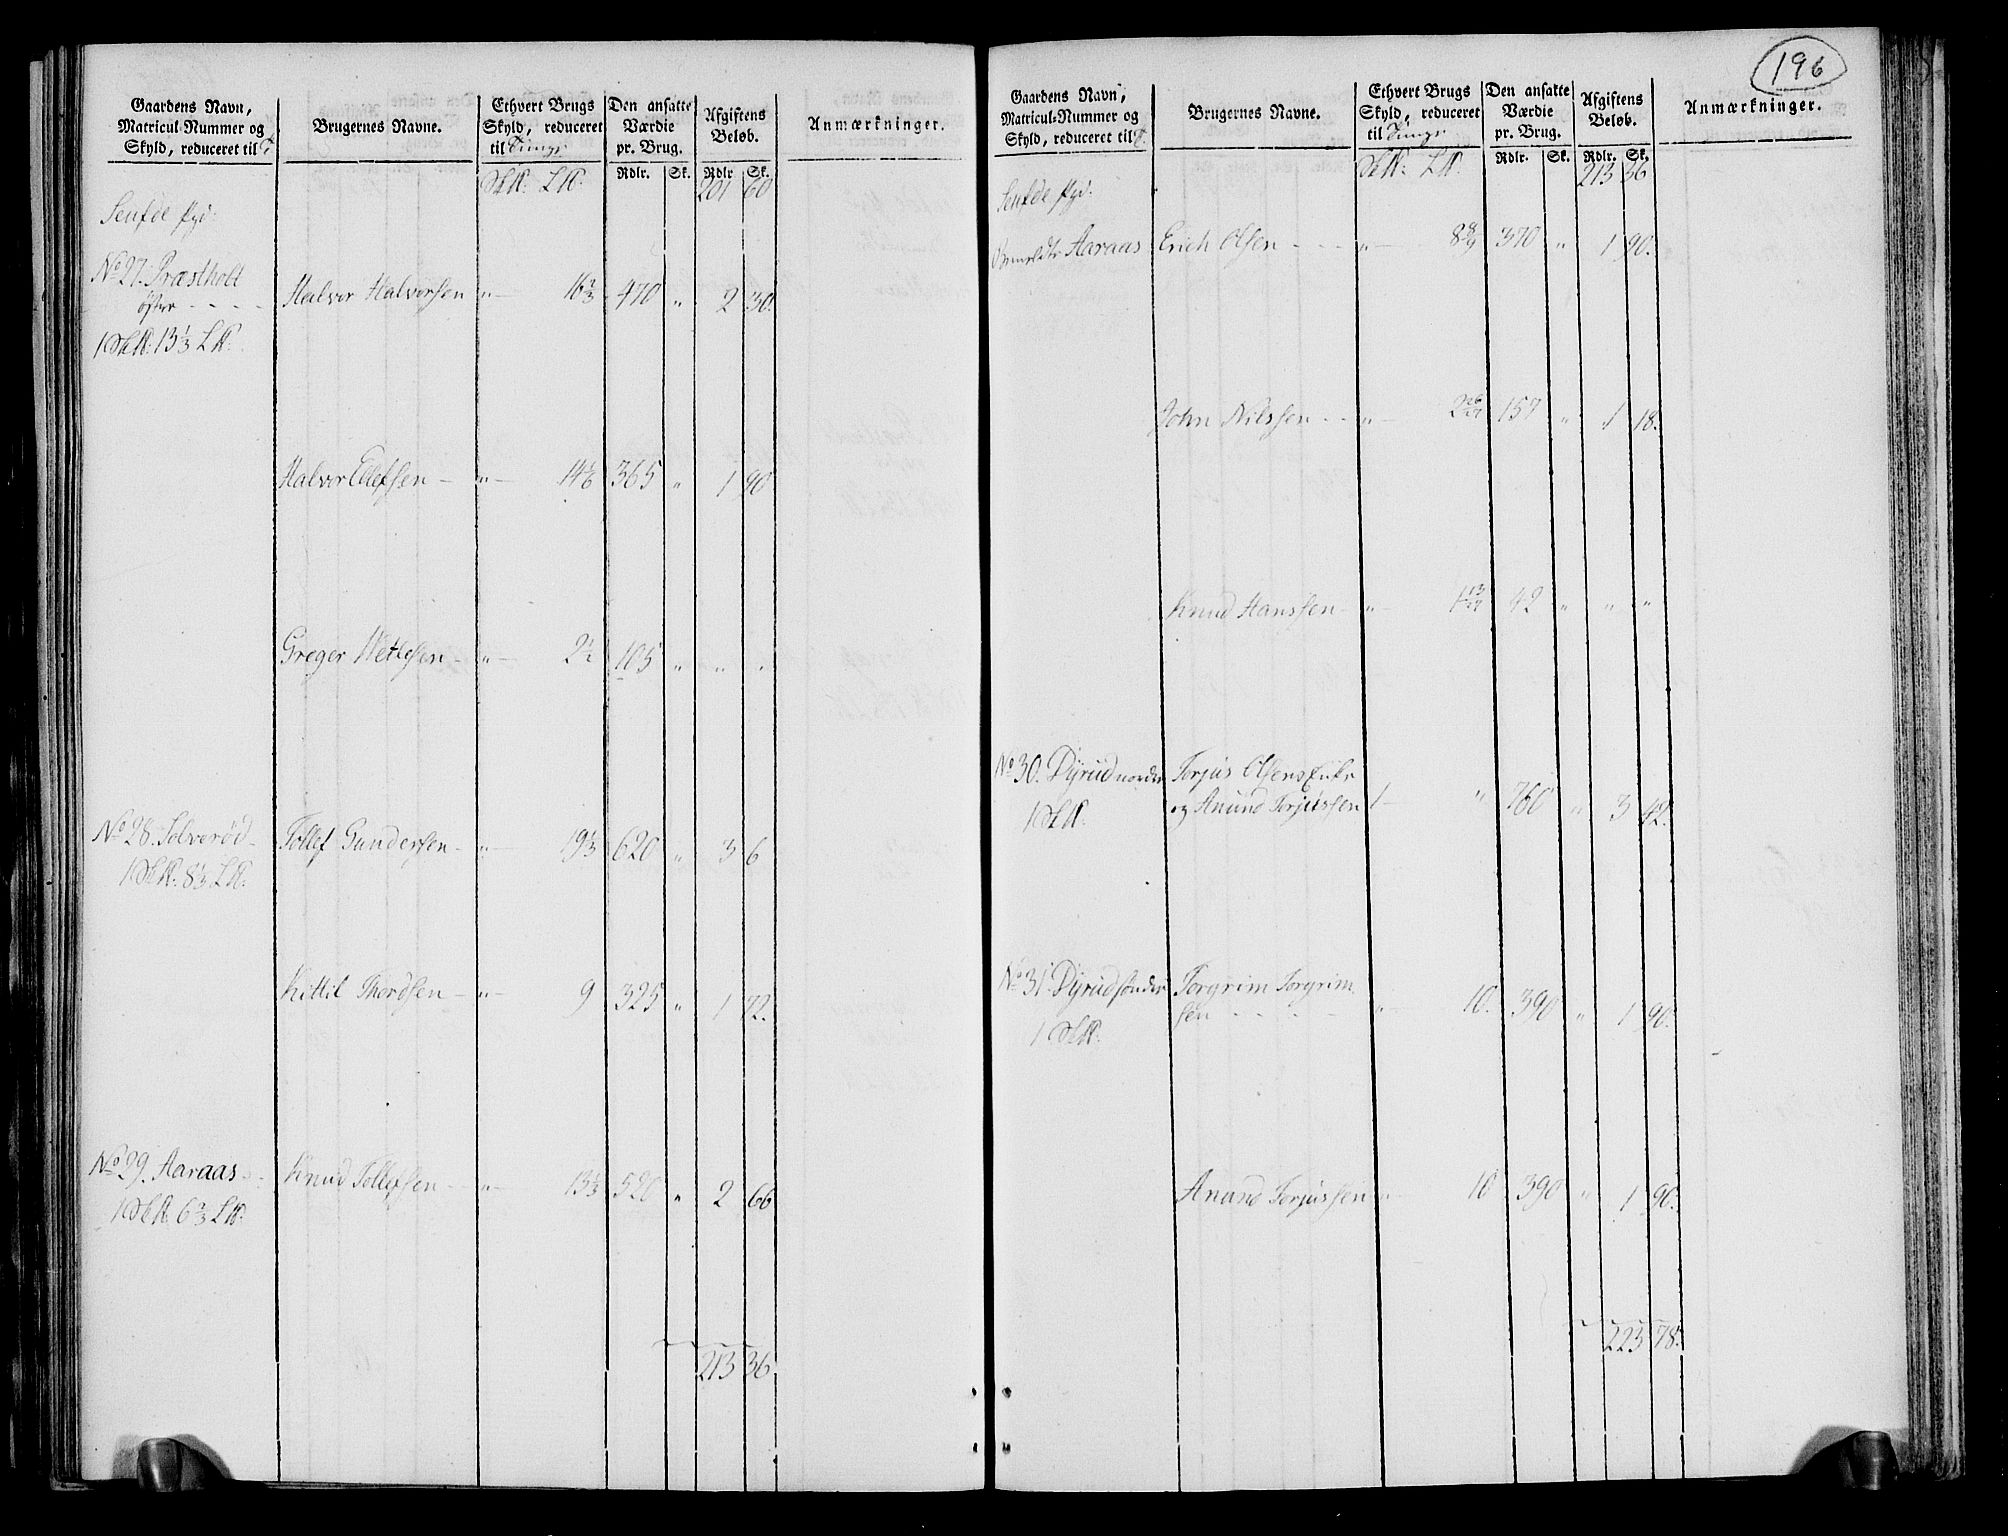 196
Gaardens Navn,
Matricul-Nummer og
Skyld, reduceret til T
Brugernes Navne.
Ethvert Brugs
Skyld, reduceret
til Tunge
Den ansatte
Værdie
pr. Brug.
Afgiftens
Beløb.
Anmærkninger.
Rdlr. Sk. Rdlr Sk.
201 60
No 27. Præstholt
øster - - - - Halvor Halvorsen " 16 2/3 470 " 2 30.
13 1/3
Halvor Ellefsen - " - 14 1/6 365 " 1 90
Greger Wetlesen - " - 2 1/2 105 " " "
No 28. Solverød - Tollef Gundersen - " - 19 1/3 620 " 3 6
8 1/3
Kittil Thordsen - " - 9 325 " 1 72.
No 29. Aaraas - Knud Tollefsen - " - 13 1/3 520 " 2 66
6 2/3
213 36
Gaardens Navn,
Matricul-Nummer og
Skyld, reduceret til T.
Brugernes Navne.
Ethvert Brugs
Skyld, reduceret
til Tunge
Den ansatte
Værdie
pr. Brug.
Afgiftens
Beløb.
Anmærkninger.
Rdlr. Sk. Rdlr. Sk.
213 36
Aaraas Erich Olsen - - - " - 8 8/9 370 " 1 90.
John Nilssen - - " - 2 26/27 157 " 1 18.
Knud Hanssen - " - 1 13/27 42 " " "
No 30. Dyrud norder Torjus Olsens Enke
og Anund Torjussen 1 - " 760 " 3 42.
No 31. Dyrud sønder Torgrim Torgrim
sen - - - - " - 10. 390 " 1 90.
Anund Torjussen " - 10 390 " 1 90.
223 78.